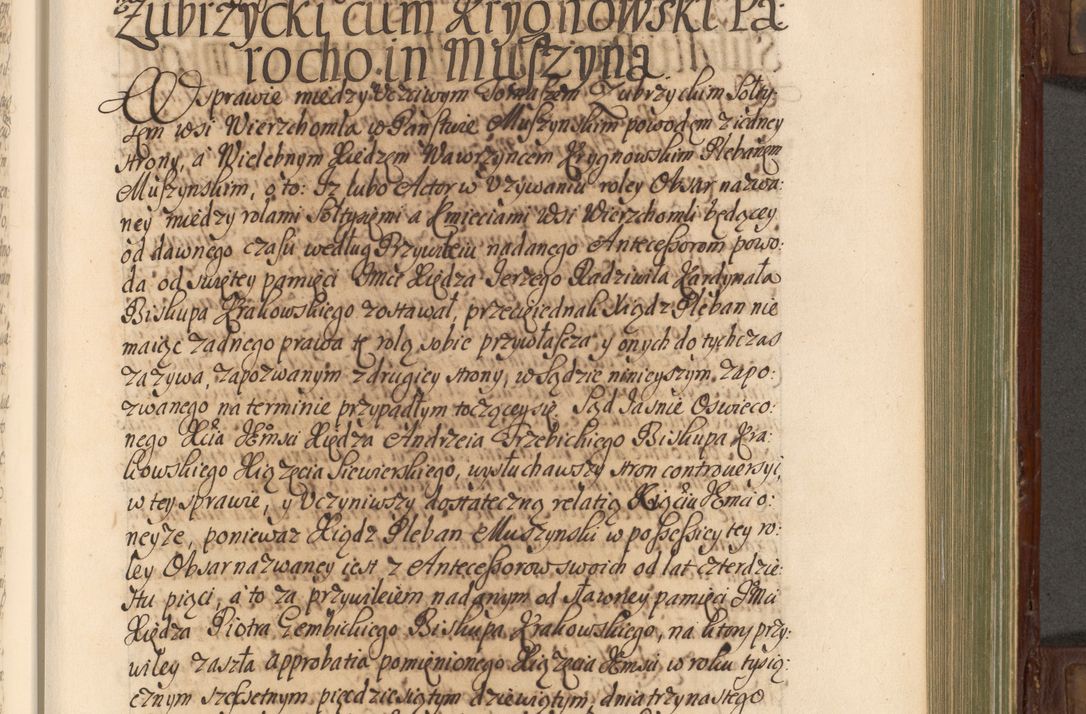 Zubrzycki cum Krygnowski Pa:
rocho in Muszyna
W sprawie między Uczciwym Tomaszem Zubrzyckim Sołty:
sem wsi Wierzchomla w Państwie Muszynskim powodem z iedney
strony, a Wielebnym Xiedzem Wawrzyncem Krygnowskim Plebanem
Muszynskim, o to: Iz lubo Actor w Uzywaniu roley Obsar nazwa:
ney miedzy rolami Sołtysiemi a Kmieciami wsi Wierzchomli będącey
od dawnego czasu według Przywileiu nadanego Antecessorom powo:
da od swiętey pamięci Jmci Xiędza Jerzego Radziwiła Kardynała
Biskupa Krakowskiego zostawał, przeciez iednak Xiądz Pleban nie
maiąc zadnego prawa tę rolą sobie przywłaszcza y onych do tychczas
zazywa, zapozwanym z drugiey strony, w Sądzie ninieyszym zapo:
zwanego na terminie przypadłym toczącey się. Sąd Jasnie Oswieco:
nego Xcia Jmsci Xiędza Andrzeia Trzebickiego Biskupa Kra:
kowskiego Xiązęcia Siewierskiego, wysłuchawszy stron controversyi,
w tey sprawie, y Uczyniwszy dostateczną relatią Xiązciu Jmci o:
neyze, poniewaz Xiądz Pleban Muszynski w possessiey tey ro:
ley Obsar nazwaney iest z Antecessorow swoich od lat czterdzie:
stu pięci, a to za przywileiem nadanym od sławney pamięci Jmci
Xiędza Piotra Gembickiego Biskupa Krakowskiego, na ktory przy:
wiley zaszła approbatia pomienionego Xiązęcia Jmsci w roku tysią:
cznym szescsetnym pięcdziesiątym dziewiątym, dnia trzynastego